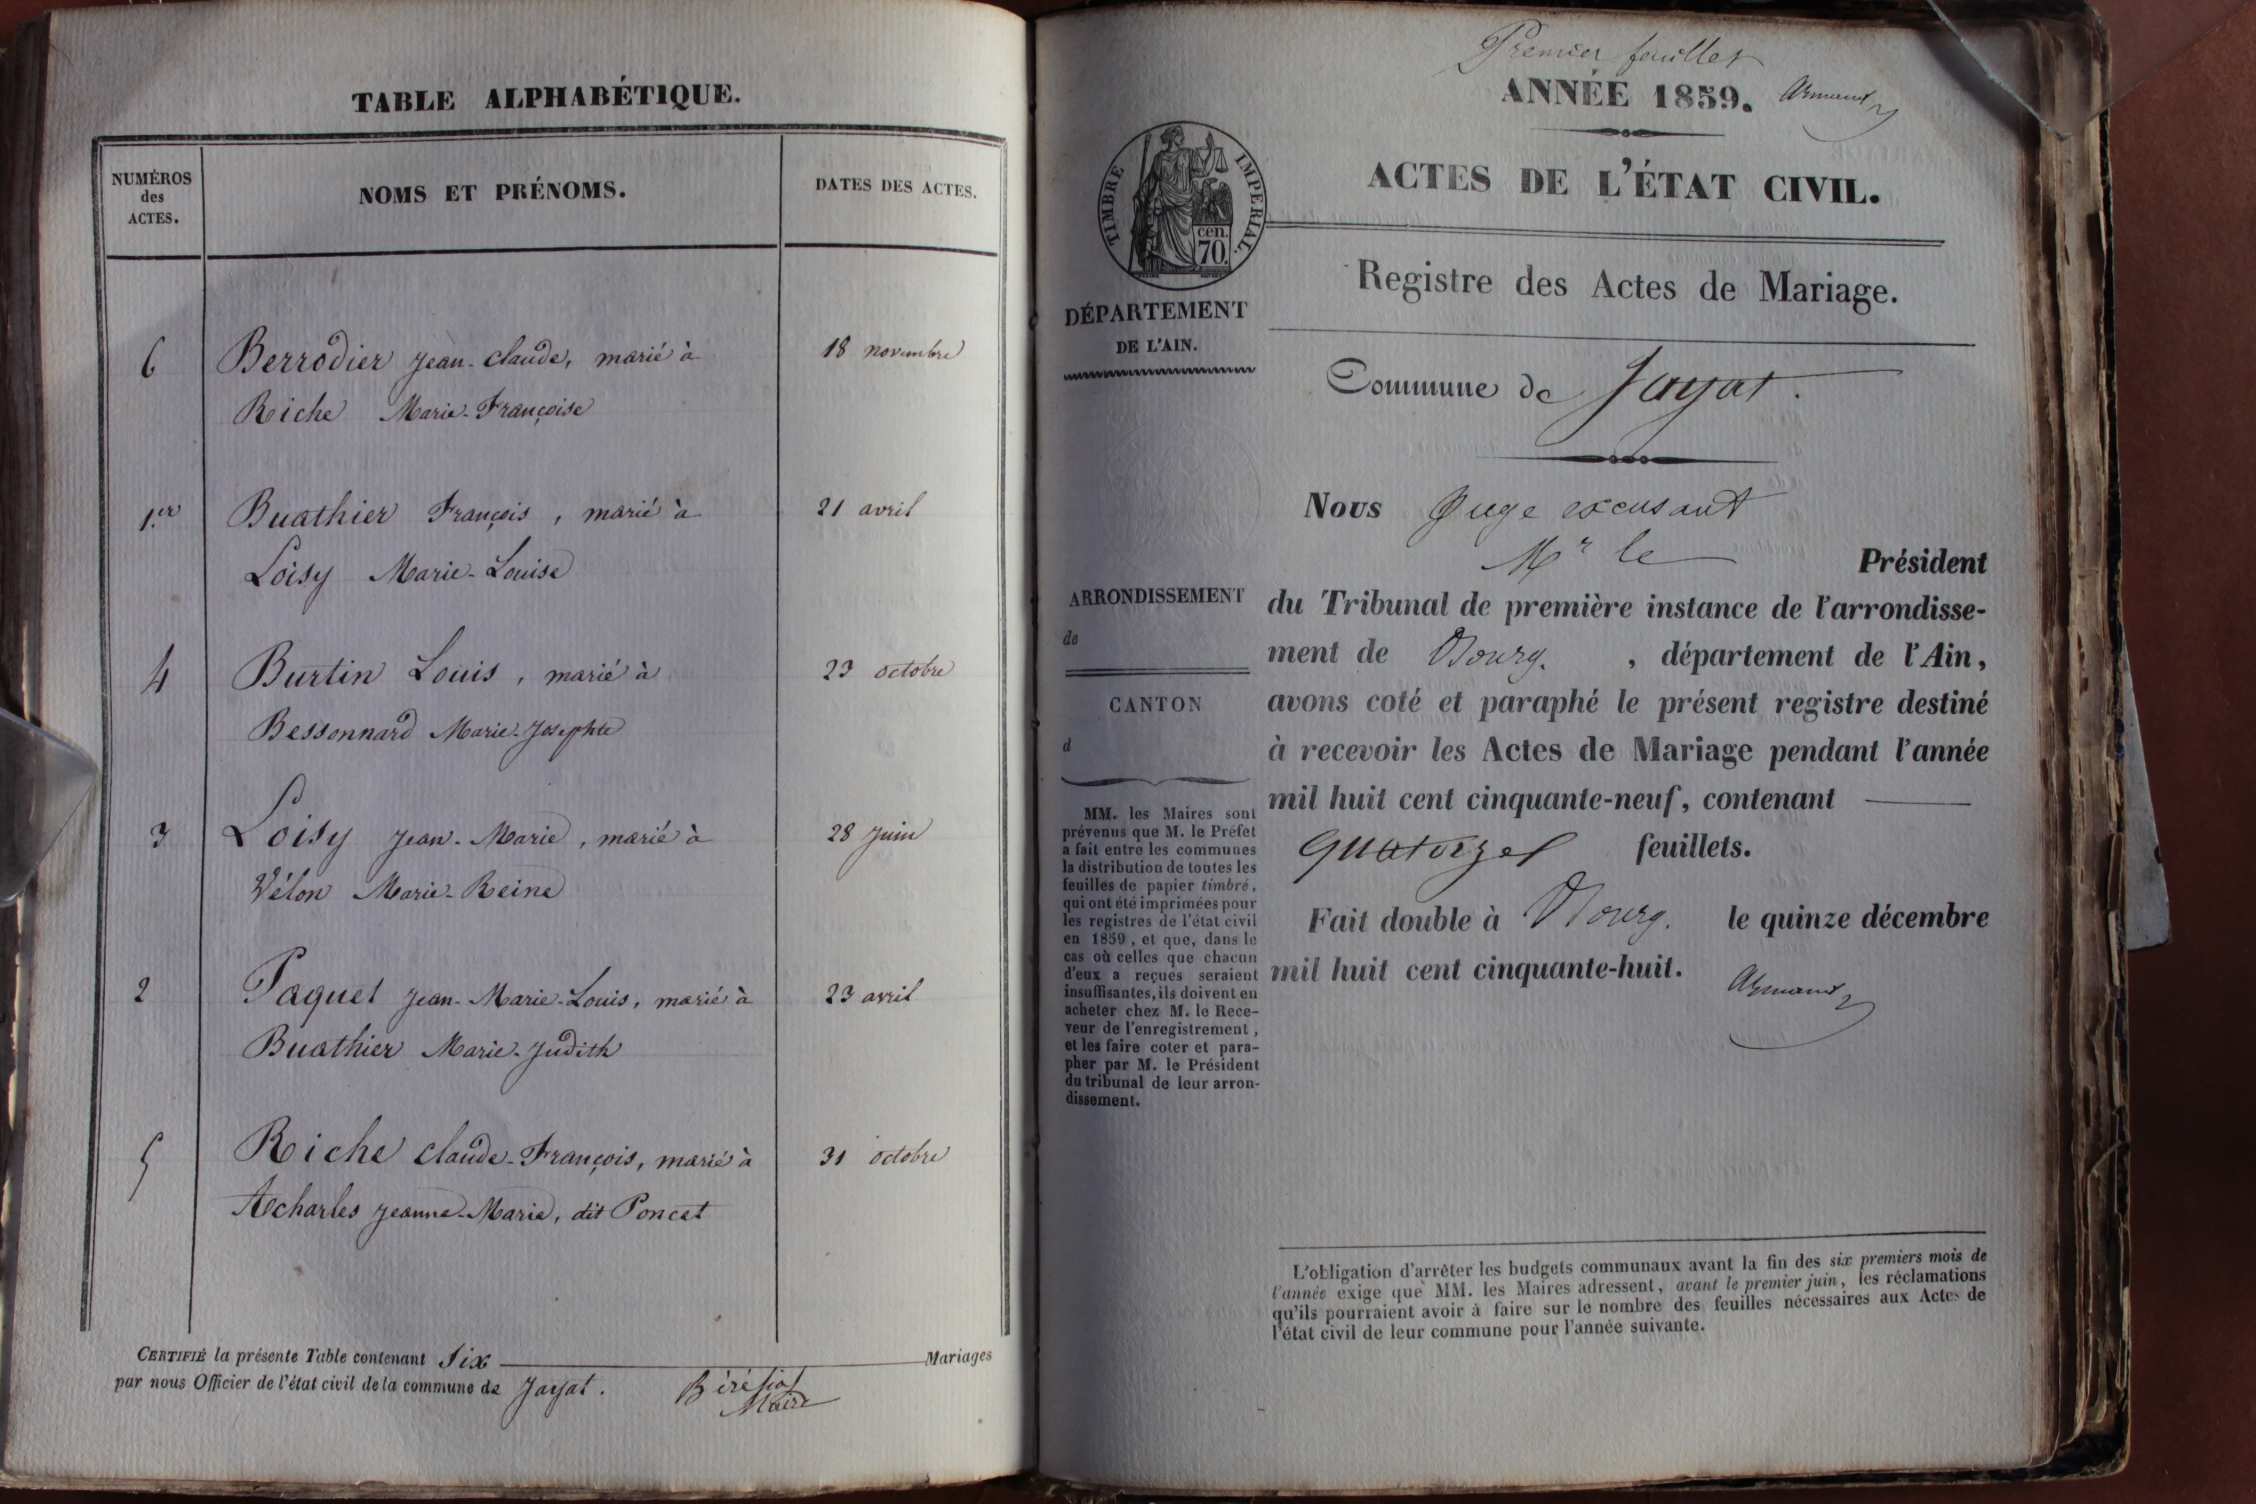 TABLE ALPHABÉTIQUE.
NUMÉROS
des
ACTES.
NOMS ET PRÉNOMS.
DATES DES ACTES.
6 Berrodier Jean-Claude, marié à 18 novembre
Riche Marie-Françoise
1.er Buathier François, marié à 21 avril
Loisy Marie-Louise
4 Burtin Louis, marié à 23 octobre
Bessonnard Marie-Josephte
3 Loisy Jean-Marie, marié à 28 juin
Vélon Marie-Reine
2 Paquet Jean-Marie-Louis, marié à 23 avril
Buathier Marie-Judith
5 Riche Claude-François, marié à 31 octobre
Acharles Jeanne-Marie, dit Poncet
CERTIFIÉ la présente Table contenant Six Mariages
par nous Officier de l'état civil de la commune de Jayat.
Maire
Premier feuillet
ANNÉE 1859.
Armand
ACTES DE L'ÉTAT CIVIL.
TIMBRE IMPERIAL.
cen.
70.
DÉPARTEMENT
DE L'AIN.
Registre des Actes de Mariage.
Commune de Jayat.
ARRONDISSEMENT
de
CANTON
d
MM. les Maires sont
prévenus que M. le Préfet
a fait entre les communes
la distribution de toutes les
feuilles de papier timbré,
qui ont été imprimées pour
les registres de l'état civil
en 1859, et que, dans le
cas où celles que chacun
d'eux a reçues seraient
insuffisantes, ils doivent en
acheter chez M. le Rece-
veur de l'enregistrement,
et les faire coter et para-
pher par M. le Président
du tribunal de leur arron-
dissement.
Nous Juge excusant
Mr le Président
du Tribunal de première instance de l'arrondisse-
ment de Bourg. , département de l'Ain,
avons coté et paraphé le présent registre destiné
à recevoir les Actes de Mariage pendant l'année
mil huit cent cinquante-neuf, contenant
quatorze feuillets.
Fait double à Bourg. le quinze décembre
mil huit cent cinquante-huit.
Armand
L'obligation d'arrêter les budgets communaux avant la fin des six premiers mois de
l'année exige que MM. les Maires adressent, avant le premier juin, les réclamations
qu'ils pourraient avoir à faire sur le nombre des feuilles nécessaires aux Actes de
l'état civil de leur commune pour l'année suivante.